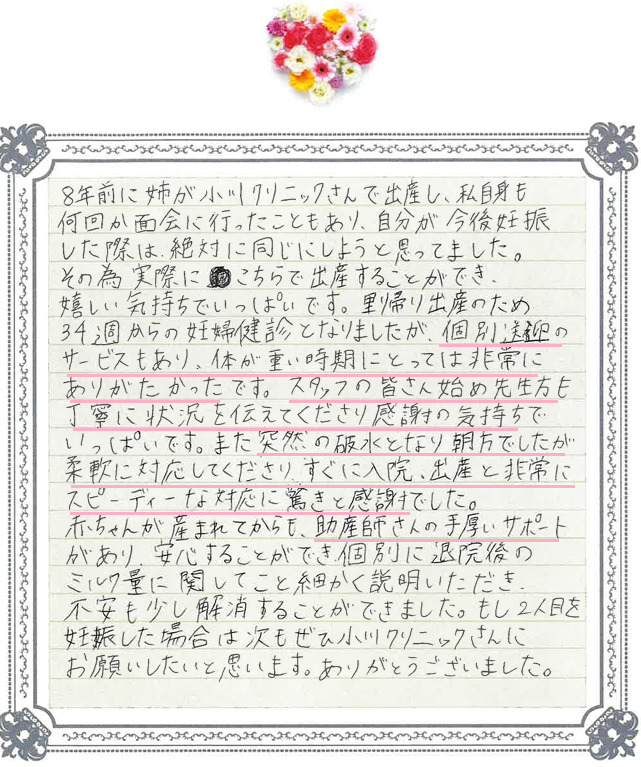 8年前に姉が小川クリニックさんで出産し、私自身も
何回か面会に行ったこともあり、自分が今後妊娠
した際は、絶対に同じにしようと思ってました。
その為 実際に こちらで出産することができ、
嬉しい気持ちでいっぱいです。里帰り出産のため
34週からの妊婦健診となりましたが、個別送迎の
サービスもあり、体が重い時期にとっては非常に
ありがたかったです。スタッフの皆さん始め先生方も
丁寧に状況を伝えてくださり感謝の気持ちで
いっぱいです。また突然の破水となり朝方でしたが
柔軟に対応してくださり、すぐに入院、出産と非常に
スピーディーな対応に驚きと感謝でした。
赤ちゃんが産まれてからも、助産師さんの手厚いサポート
があり、安心することができ個別に退院後の
ミルク量に関してこと細かく説明いただき、
不安も少し解消することができました。もし2人目を
妊娠した場合は次もぜひ小川クリニックさんに
お願いしたいと思います。ありがとうございました。